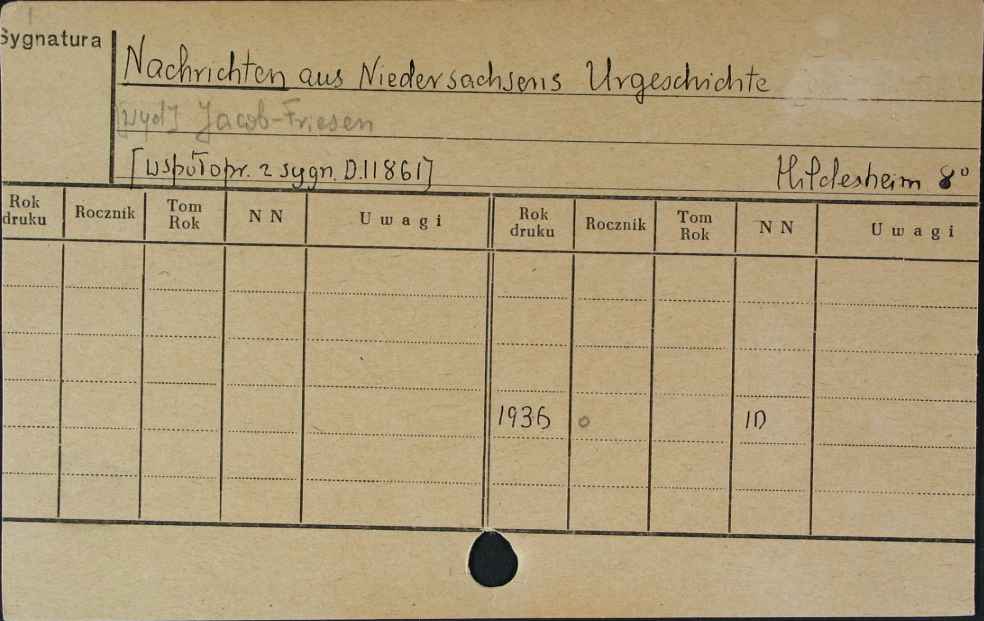 Sygnatura
Nachrichten aus Niedersachsens Urgeschichte
[wyd] Jacob-Friesen
[współopr. z sygn. D.11861] Hildesheim 8°
Rok druku Rocznik Tom Rok NN Uwagi Rok druku Rocznik Tom Rok NN Uwagi
1936 o 10